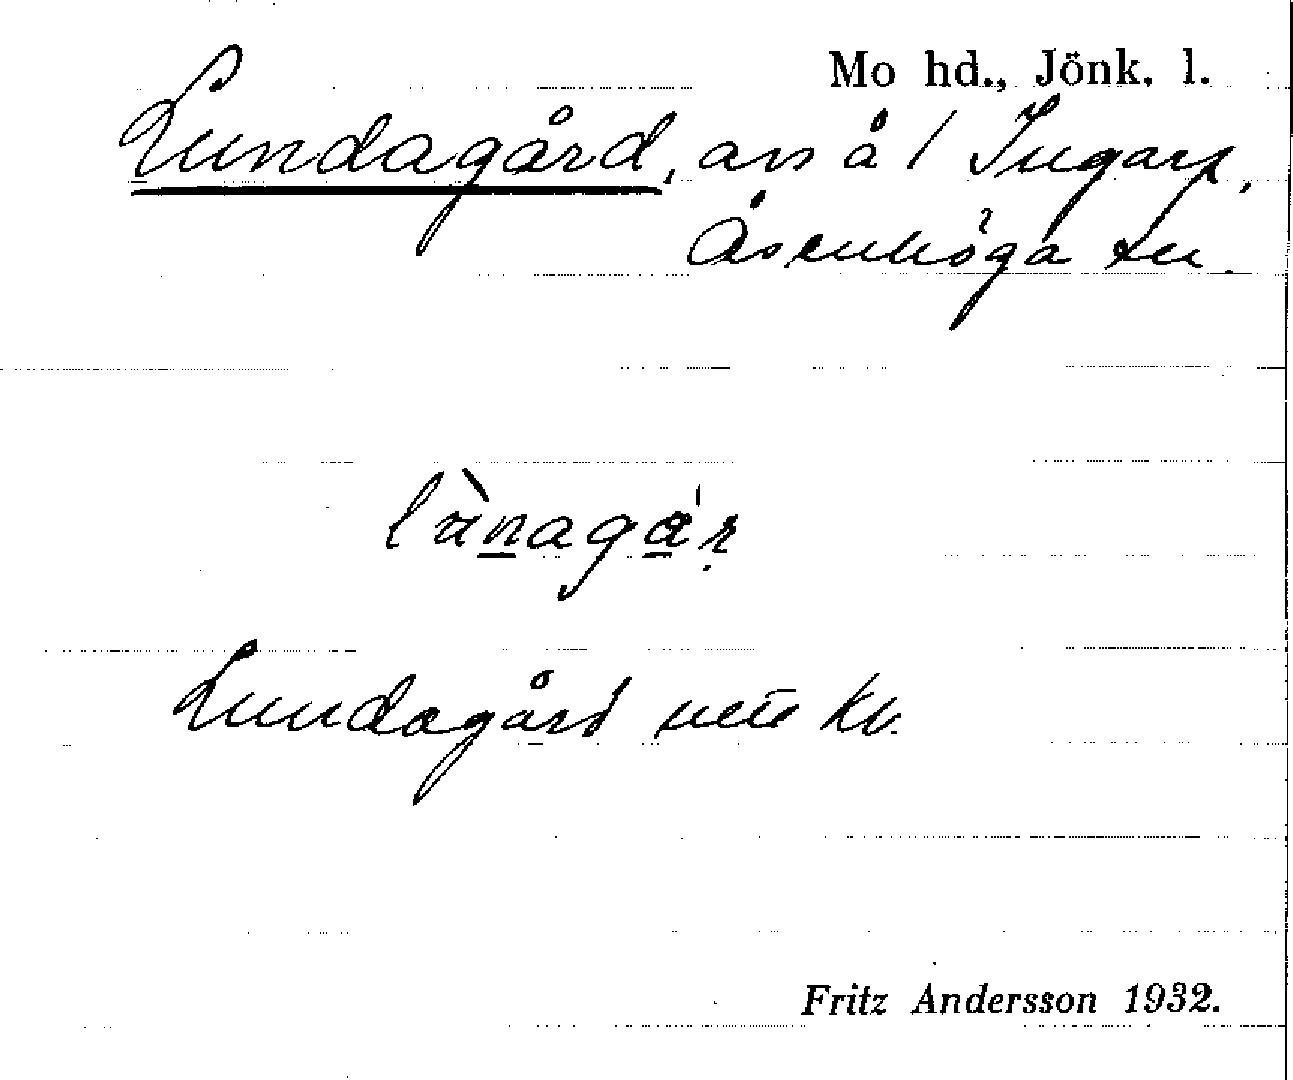 Mo hd., Jönk. l.
Lundagård, avs å 1 Ingarp,
Åsenhöga sn.
Lundagård
Fritz Andersson 1932.